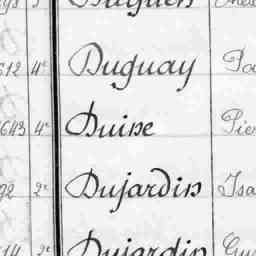 612 4e Duguay
643 4e Duine
92 2e Dujardin Isa
14 2e Dujardin